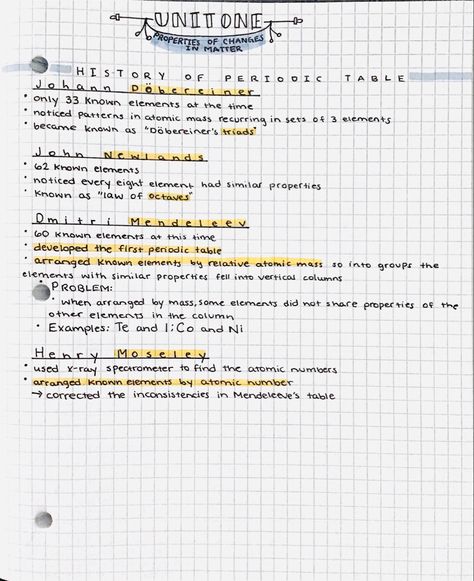 UNIT ONE
PROPERTIES OF CHANGES
IN MATTER
HISTORY OF PERIODIC TABLE
Johann Döbereiner
• only 33 known elements at the time
• noticed patterns in atomic mass recurring in sets of 3 elements
• became known as "Döbereiner's triads"
John Newlands
• 62 known elements
• noticed every eight element had similar properties
• known as "law of octaves"
Dmitri Mendeleev
• 60 known elements at this time
• developed the first periodic table
• arranged known elements by relative atomic mass so into groups the
elements with similar properties fell into vertical columns
• PROBLEM:
• when arranged by mass, some elements did not share properties of the
other elements in the column
• Examples: Te and I; Co and Ni
Henry Moseley
• used x-ray spectrometer to find the atomic numbers
• arranged known elements by atomic number
→ corrected the inconsistencies in Mendeleeve's table